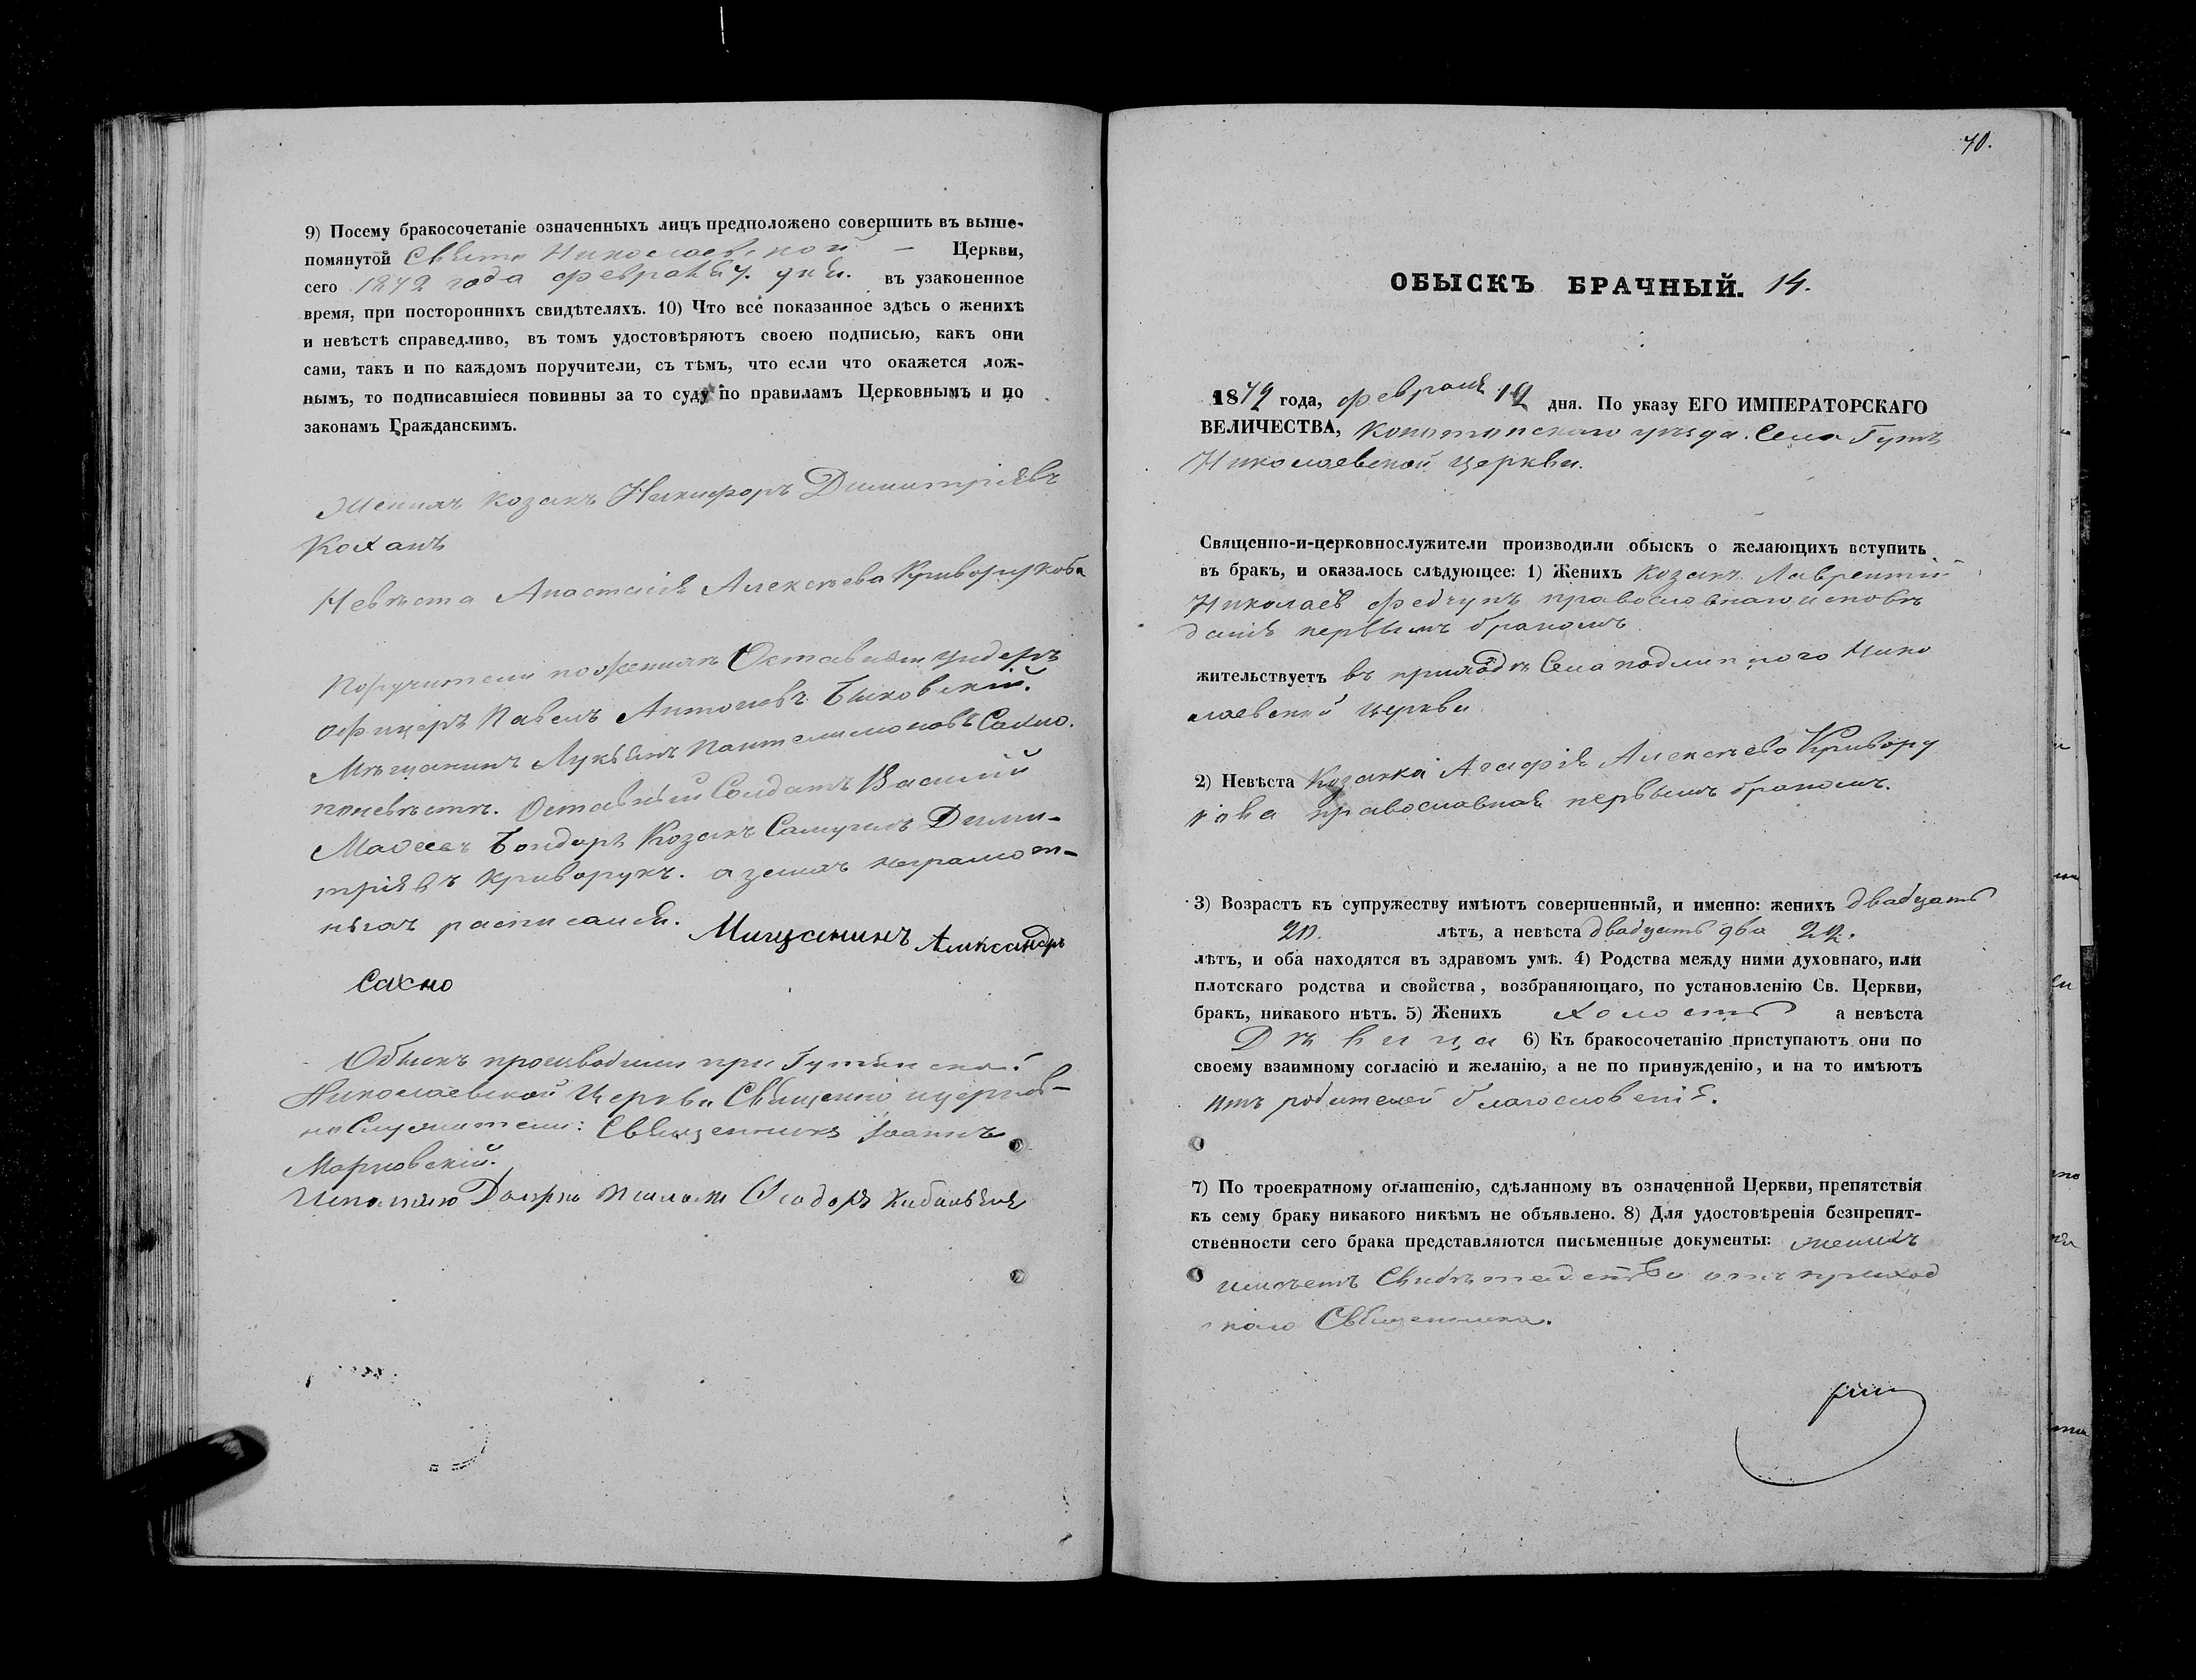 9) Посему бракосочетаніе означенныхъ лицъ предположено совершить въ выше-
помянутой Свято Николаевской — Церкви,
сего 1872 года февраля 7. дня. въ узаконенное
время, при постороннихъ свидѣтеляхъ. 10) Что всё показанное здѣсь о женихѣ
и невѣстѣ справедливо, въ томъ удостовѣряютъ своею подписью, какъ они
сами, такъ и по каждомъ поручители, съ тѣмъ, что если что окажется лож-
нымъ, то подписавшіеся повинны за то суду по правиламъ Церковнымъ и по
законамъ Гражданскимъ.
Женихъ козакъ Никифоръ Димитріевъ
Коханъ
Невѣста Анастасія Алексѣева Криворукова
Поручители по женихѣ Оставной ундеръ
офицеръ Павелъ Антоновъ Быковскій.
Мѣщанинъ Лукьянъ Пантелимоновъ Сахно.
по невѣстѣ. Оставный Солдатъ Василій
Бондарь Козакъ Самуилъ Дими-
тріевъ Криворукъ. а за нихъ неграмот-
ныхъ расписался. Мищанинъ Александръ
Сахно
Обыскъ производили при Гутянской
Николаевской Церкви Священно и церков-
но Служители: Священникъ Іоаннъ
Марковскій.
Псалом Ѳеодоръ
70.
ОБЫСКЪ БРАЧНЫЙ. 14.
1872 года, февраля дня. По указу ЕГО ИМПЕРАТОРСКАГО
ВЕЛИЧЕСТВА, Конотопскаго уѣзда. Села Гутъ
Николаевской церкви.
Священно-и-церковнослужители производили обыскъ о желающихъ вступить
въ бракъ, и оказалось слѣдующее: 1) Женихъ Козакъ Лаврентій
Николаевъ Федчунъ православнаго исповѣ
данія первымъ бракомъ
жительствуетъ въ приходѣ Села подлипного Нико
лаевской церкви
2) Невѣста Козачка Агафія Алексѣева Кривору
кова православная первымъ бракомъ.
3) Возрастъ къ супружеству имѣютъ совершенный, и именно: женихъ двадцать
20. лѣтъ, а невѣста двадцать два 22.
лѣтъ, и оба находятся въ здравомъ умѣ. 4) Родства между ними духовнаго, или
плотскаго родства и свойства, возбраняющаго, по установленію Св. Церкви,
бракъ, никакого нѣтъ. 5) Женихъ холостъ а невѣста
Дѣвица 6) Къ бракосочетанію приступаютъ они по
своему взаимному согласію и желанію, а не по принужденію, и на то имѣютъ
отъ родителей благословенія.
7) По троекратному оглашенію, сдѣланному въ означенной Церкви, препятствія
къ сему браку никакого никѣмъ не объявлено. 8) Для удостовѣренія безпрепят-
ственности сего брака представляются письменные документы: женихъ
имѣетъ Свидѣтельство отъ приход
скаго Священника.